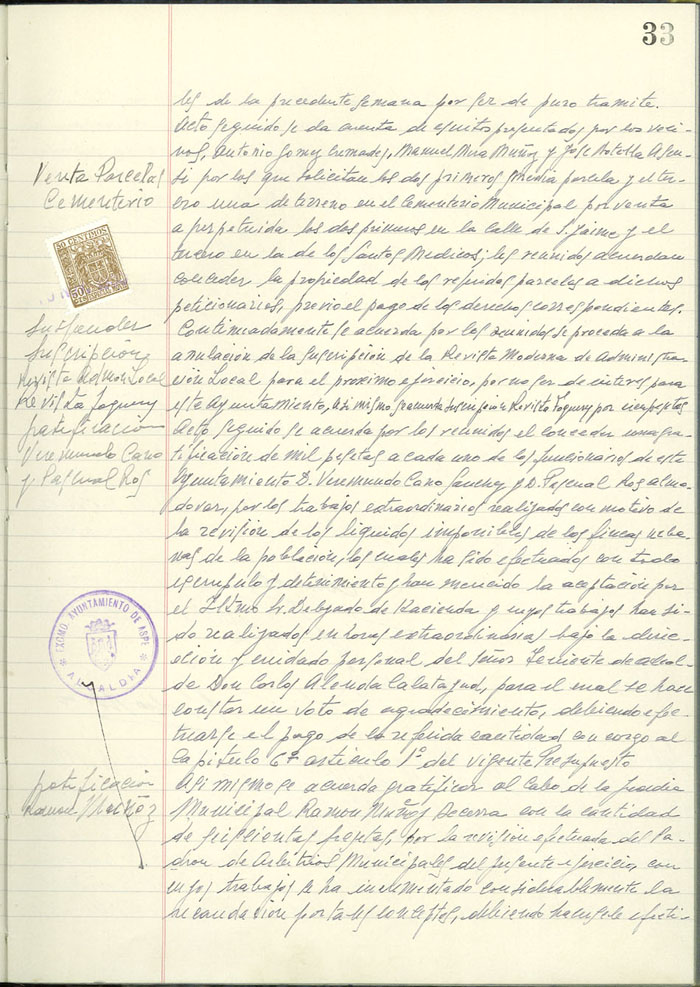 33
les de la precedente semana por ser de puro tramite.
Acto seguido se da cuenta de escritos presentados por los veci-
nos, Antonio Gomez Cremades, Manuel Mira Muñoz y Jose Botella Asen-
si por los que solicitan los dos primeros media parcela y el ter-
cero una de terreno en el Cementerio Municipal por venta
a perpetuidad los dos primeros en la Calle de S. Jaime y el
tercero en la de los Santos Medicos; los reunidos acuerdan
conceder la propiedad de las referidas parcelas a dichos
peticionarios, previo el pago de los derechos correspondientes.
Continuadamente se acuerda por los reunidos se proceda a la
anulación de la suscripción de la Revista Moderna de Administra-
ción Local para el proximo ejercicio, por no ser de interes para
este Ayuntamiento, asi mismo se acuerda suscripcion Revista por pesetas
Acto seguido se acuerda por los reunidos el conceder una gra-
tificación de mil pesetas a cada uno de los funcionarios de este
Ayuntamiento D. Veremundo Cano Sanchez y D. Pascual Ros Almo-
dovar, por los trabajos extraordinarios realizados con motivo de
la revisión de los liquidos imponibles de las fincas urba-
nas de la población, los cuales ha sido efectuados con todo
escrupulo y detenimiento y han merecido la aceptación por
el Iltmo Sr. Delegado de Hacienda y cuyos trabajos han si-
do realizados en horas extraordinarias bajo la direc-
ción y cuidado personal del señor Teniente de alcal-
de Don Carlos Alenda Calatayud, para el cual se hace
constar un voto de agradecimiento, debiendo efec-
tuarse el pago de la referida cantidad con cargo al
Capitulo 6º articulo 1º del vigente Presupuesto
Asi mismo se acuerda gratificar al Cabo de la Guardia
Municipal Ramon Muñoz Becerra con la cantidad
de seiscientas pesetas, por la revisión efectuada del Pa-
dron de Arbitrios Municipales del presente ejercicio, con
cuyos trabajos se ha incrementado considerablemente la
recaudación por tales conceptos, debiendo hacersele efecti-
Venta Parcelas
Cementerio
50 CENTIMOS
suspender
suscripción
revista Admon Local
Revista
gratificación
Veremundo Cano
y Pascual Ros
EXCMO. AYUNTAMIENTO DE ASPE
ALCALDIA
gratificación
Ramon Muñoz